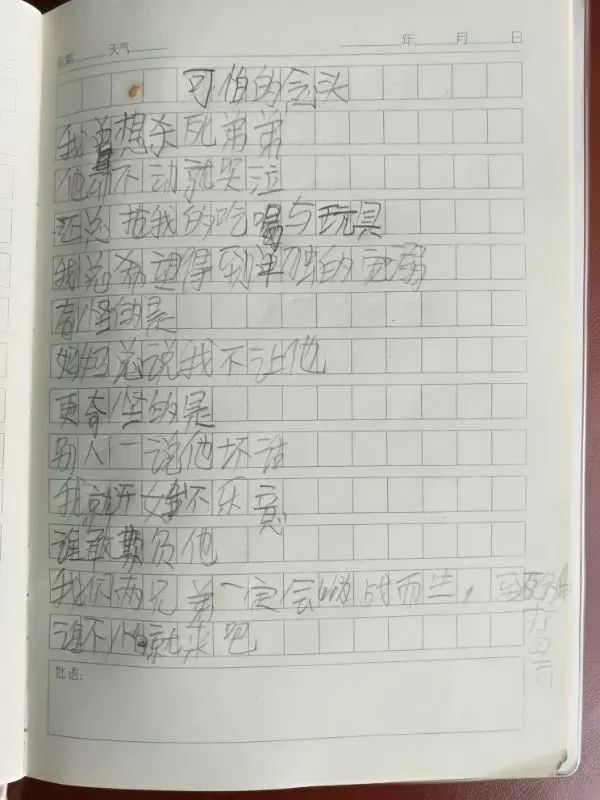 日期 天气 年 月 日
可怕的念头
我曾想杀死弟弟
他动不动就哭泣
还总抢我的吃喝与玩具
我总希望得到单独的宠爱
奇怪的是
妈妈总说我不让他
更奇怪的是
别人一说他坏话
我就开始不乐意
谁敢欺负他
我们两兄弟一定会 战而
谁不 就来吧
批语: